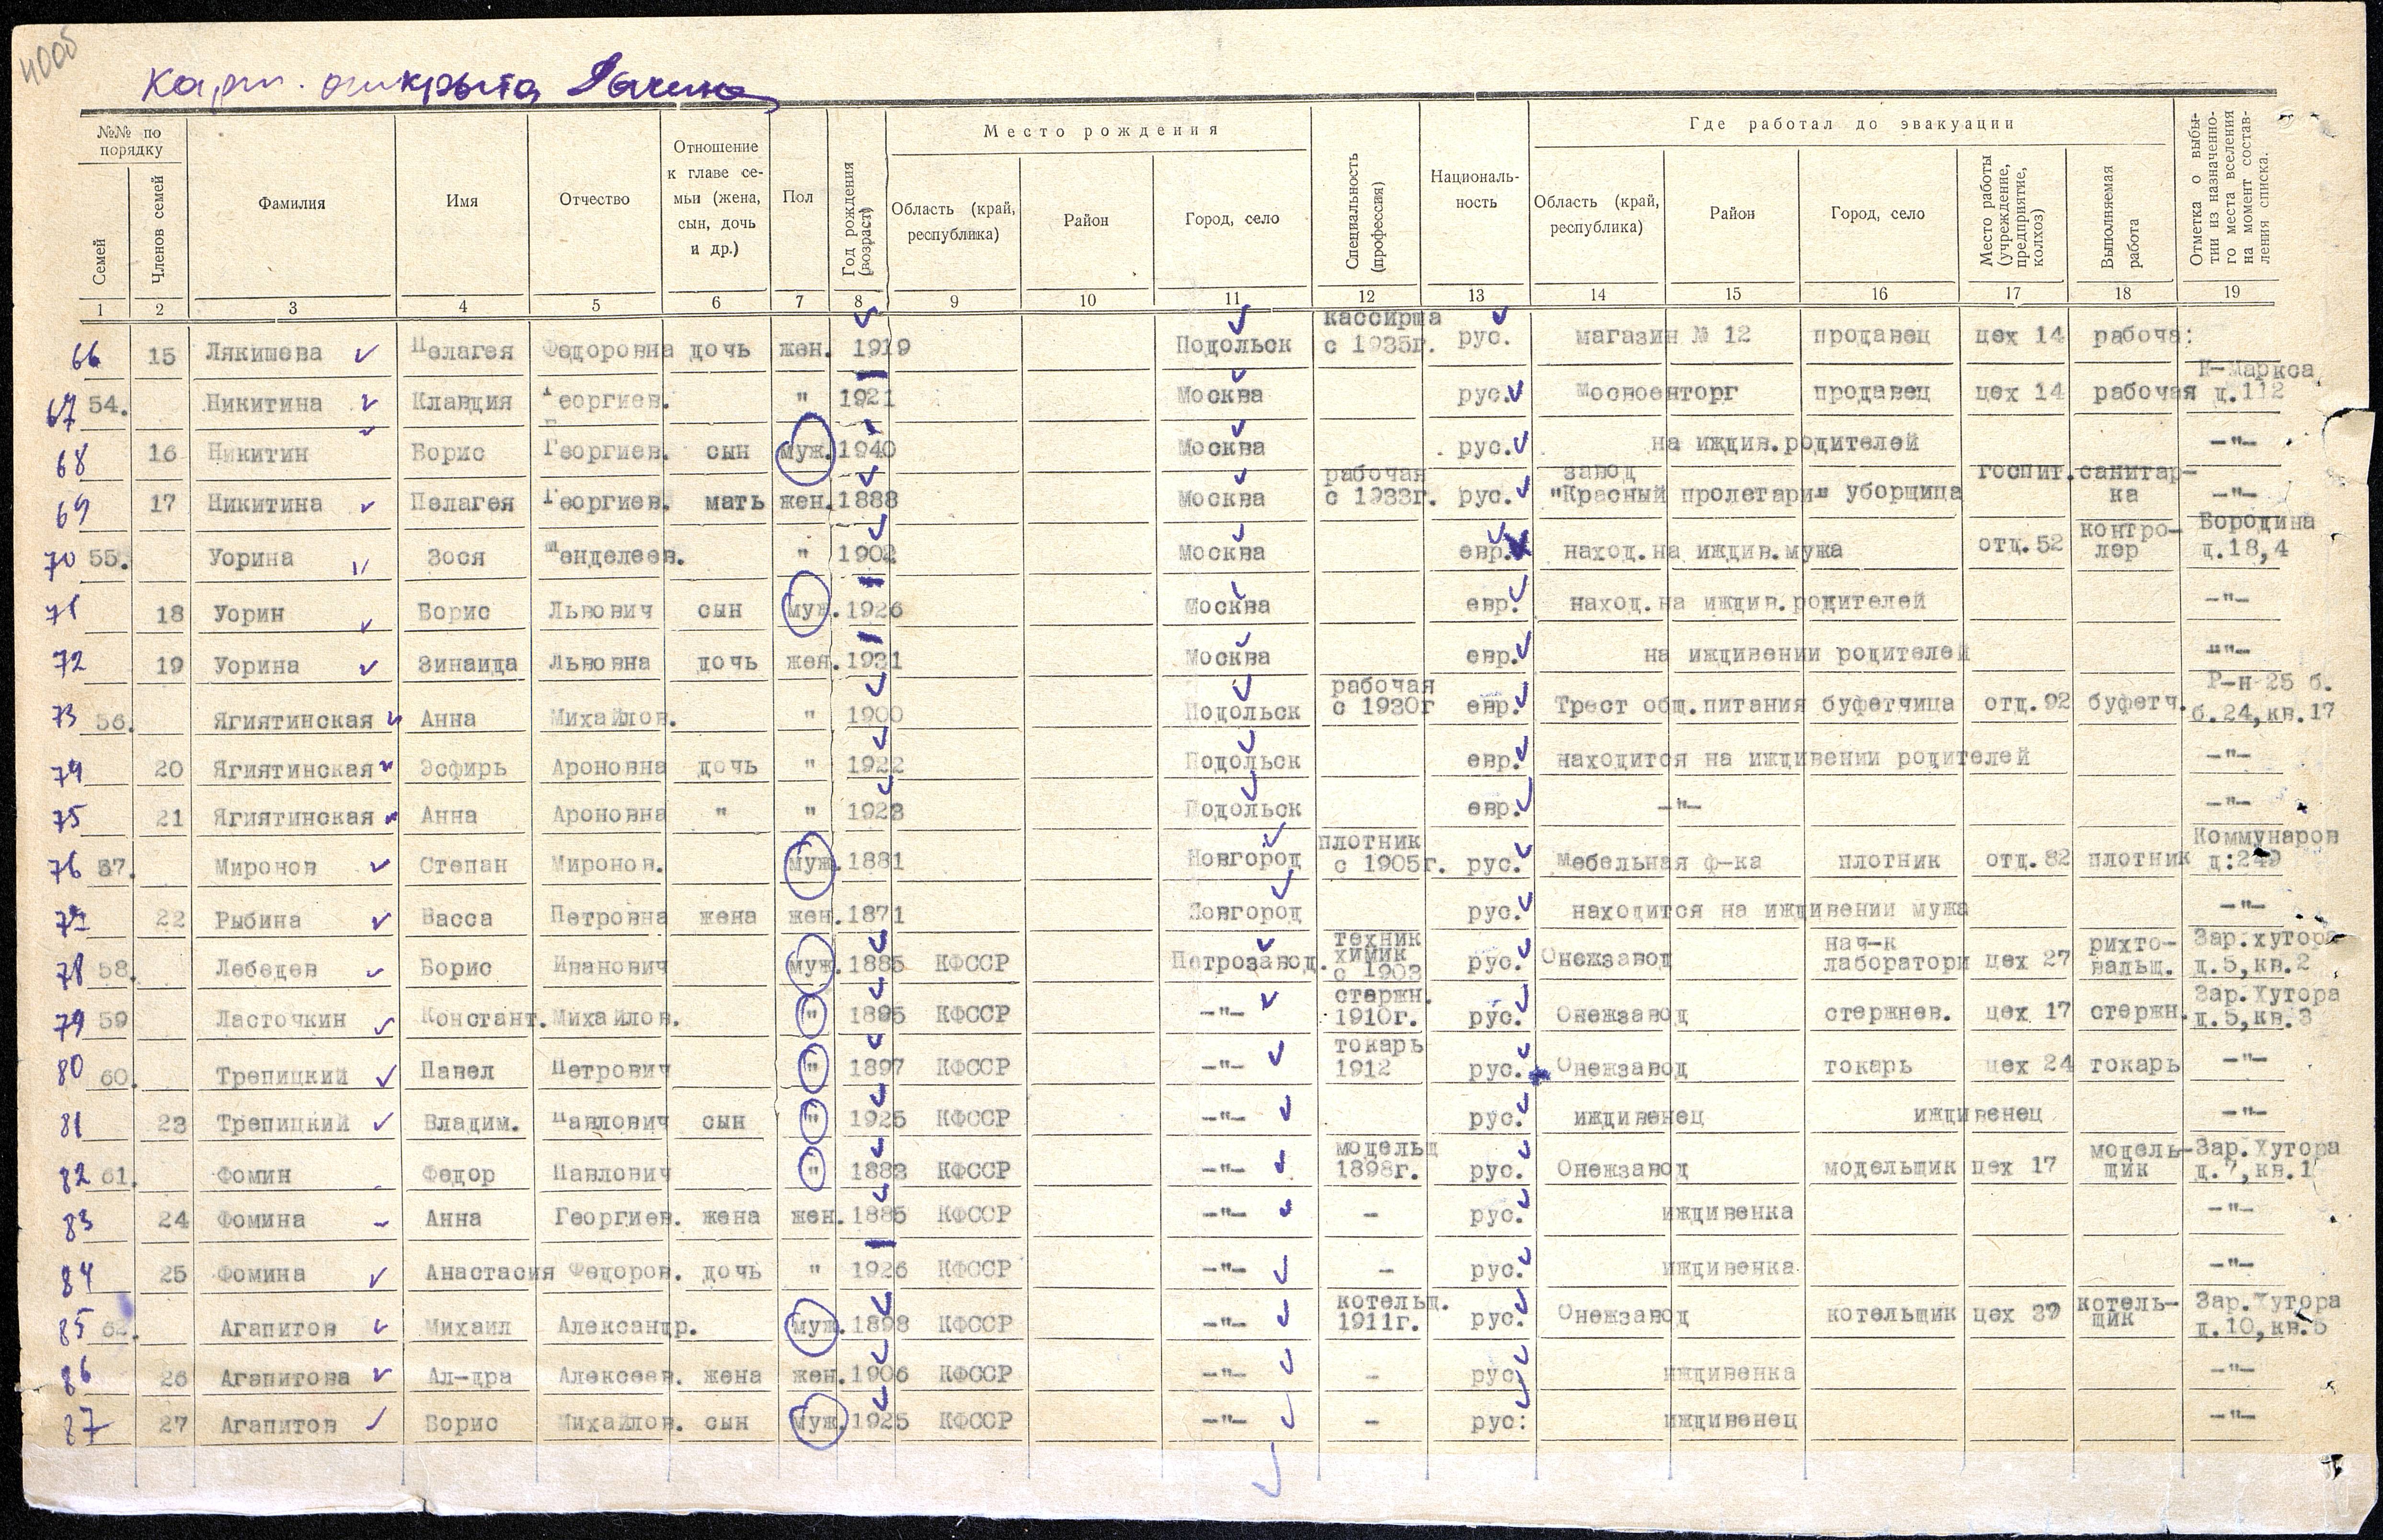 4005
Карт. открыта
№№ по порядку
Семей
Членов семей
Фамилия
Имя
Отчество
Отношение к главе семьи (жена, сын, дочь и др.)
Пол
Год рождения (возраст)
Место рождения
Область (край, республика)
Район
Город, село
Специальность (профессия)
Националь-ность
Где работал до эвакуации
Область (край, республика)
Район
Город, село
Место работы (учреждение, предприятие, колхоз)
Выполняемая работа
Отметка о выбы-тии из назначенно-го места вселения на момент состав-ления списка.
1 2 3 4 5 6 7 8 9 10 11 12 13 14 15 16 17 18 19
66 15 Лякишева Пелагея Федоровна дочь жен. 1919 Подольск кассирша с 1935г. рус. магазин № 12 продавец цех 14 рабоча:
67 54. Никитина Клавдия Георгиев. " 1921 Москва рус. Мосвоенторг продавец цех 14 рабочая К-Маркса д.112
68 16 Никитин Борис Георгиев. сын муж. 1940 Москва рус. на иждив.родителей -"-
69 17 Никитина Пелагея Георгиев. мать жен. 1888 Москва рабочая с 1933г. рус. завод "Красный пролетари" уборщица госпит. санитар-ка -"-
70 55. Уорина Зося Менделеев. " 1902 Москва евр. наход.на иждив.мужа отд.52 контро-лер Бородина д.18,4
71 18 Уорин Борис Львович сын муж. 1926 Москва евр. наход.на иждив.родителей -"-
72 19 Уорина Зинаида Львовна дочь жен. 1931 Москва евр. на иждивении родителей -"-
73 56. Ягиятинская Анна Михайлов. " 1900 Подольск рабочая с 1930г евр. Трест общ.питания буфетчица отд.92 буфетч. Р-н 25 б. б.24,кв.17
74 20 Ягиятинская Эсфирь Ароновна дочь " 1922 Подольск евр. находится на иждивении родителей -"-
75 21 Ягиятинская Анна Ароновна " " 1923 Подольск евр. -"- -"-
76 57. Миронов Степан Миронов. муж. 1881 Новгород плотник с 1905г. рус. Мебельная ф-ка плотник отд.82 плотник Коммунаров
77 22 Рыбина Васса Петровна жена жен. 1871 Новгород рус. находится на иждивении мужа -"-
78 58. Лебедев Борис Иванович муж. 1885 КФССР Петрозавод. техник химик с 1903 рус. Онежзавод нач-к лаборатори цех 27 рихто-вальщ. Зар.хутора д.5,кв.2
79 59 Ласточкин Констант. Михайлов. " 1895 КФССР -"- стержн. 1910г. рус. Онежзавод стержнев. цех 17 стержн. Зар.Хутора д.5,кв.3
80 60. Трепицкий Павел Петрович " 1897 КФССР -"- токарь 1912 рус. Онежзавод токарь цех 24 токарь -"-
81 23 Трепицкий Владим. Павлович сын " 1925 КФССР -"- рус. иждивенец иждивенец -"-
82 61. Фомин Федор Павлович " 1883 КФССР -"- модельщ 1898г. рус. Онежзавод модельщик цех 17 модель-щик Зар.Хутора д.7,кв.1
83 24 Фомина Анна Георгиев. жена жен. 1885 КФССР -"- - рус. иждивенка -"-
84 25 Фомина Анастасия Федоров. дочь " 1926 КФССР -"- - рус. иждивенка -"-
85 62. Агапитов Михаил Александр. муж. 1898 КФССР -"- котельщ. 1911г. рус. Онежзавод котельщик цех 39 котель-щик Зар.Хутора д.10,кв.5
86 26 Агапитова Ал-дра Алексеев. жена жен. 1906 КФССР -"- - рус. иждивенка -"-
87 27 Агапитов Борис Михайлов. сын муж. 1925 КФССР -"- - рус: иждивенец -"-